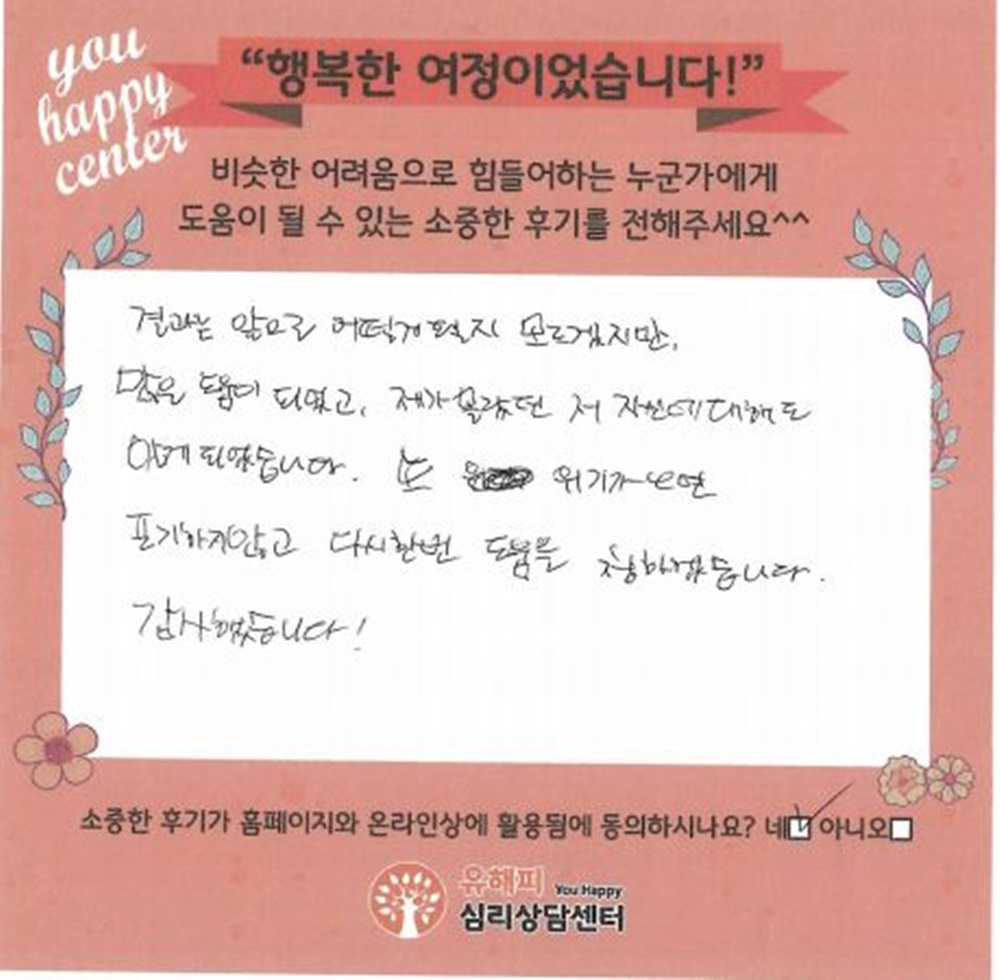 you
happy
center
“행복한 여정이었습니다!”
비슷한 어려움으로 힘들어하는 누군가에게
도움이 될 수 있는 소중한 후기를 전해주세요^^
결과는 앞으로 어떻게 될지 모르겠지만,
많은 도움이 되었고, 제가 몰랐던 저 자신에 대해도
알게 되었습니다. 또 위기가 오면
포기하지 않고 다시 한번 도움을 청하겠습니다.
감사했습니다!
소중한 후기가 홈페이지와 온라인상에 활용됨에 동의하시나요? 네 아니오
유해피 You Happy
심리상담센터